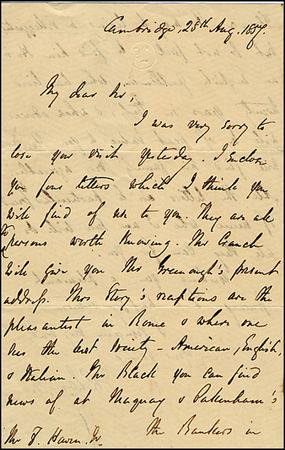 Cambridge, 28th Aug. 1857.
My dear Sir,
I was very sorry to
lose your visit yesterday. I enclose
you four letters which I think you
will find of use to you. They are all
to persons worth knowing. Mr Cranch
will give you Mr Greenough's present
address. Mrs Story's receptions are the
pleasantest in Rome & where one
has the best variety - American, English,
& Italian. Mr Black you can find
news of at Maquay & Pakenham's
the Bankers in
Mr F. Haven Jr.